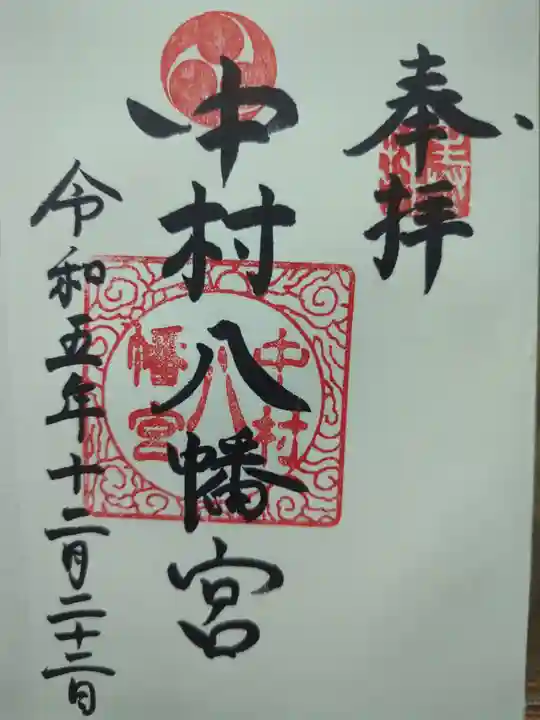 奉拝
中村八幡宮
中村八幡宮
令和五年十二月二十二日